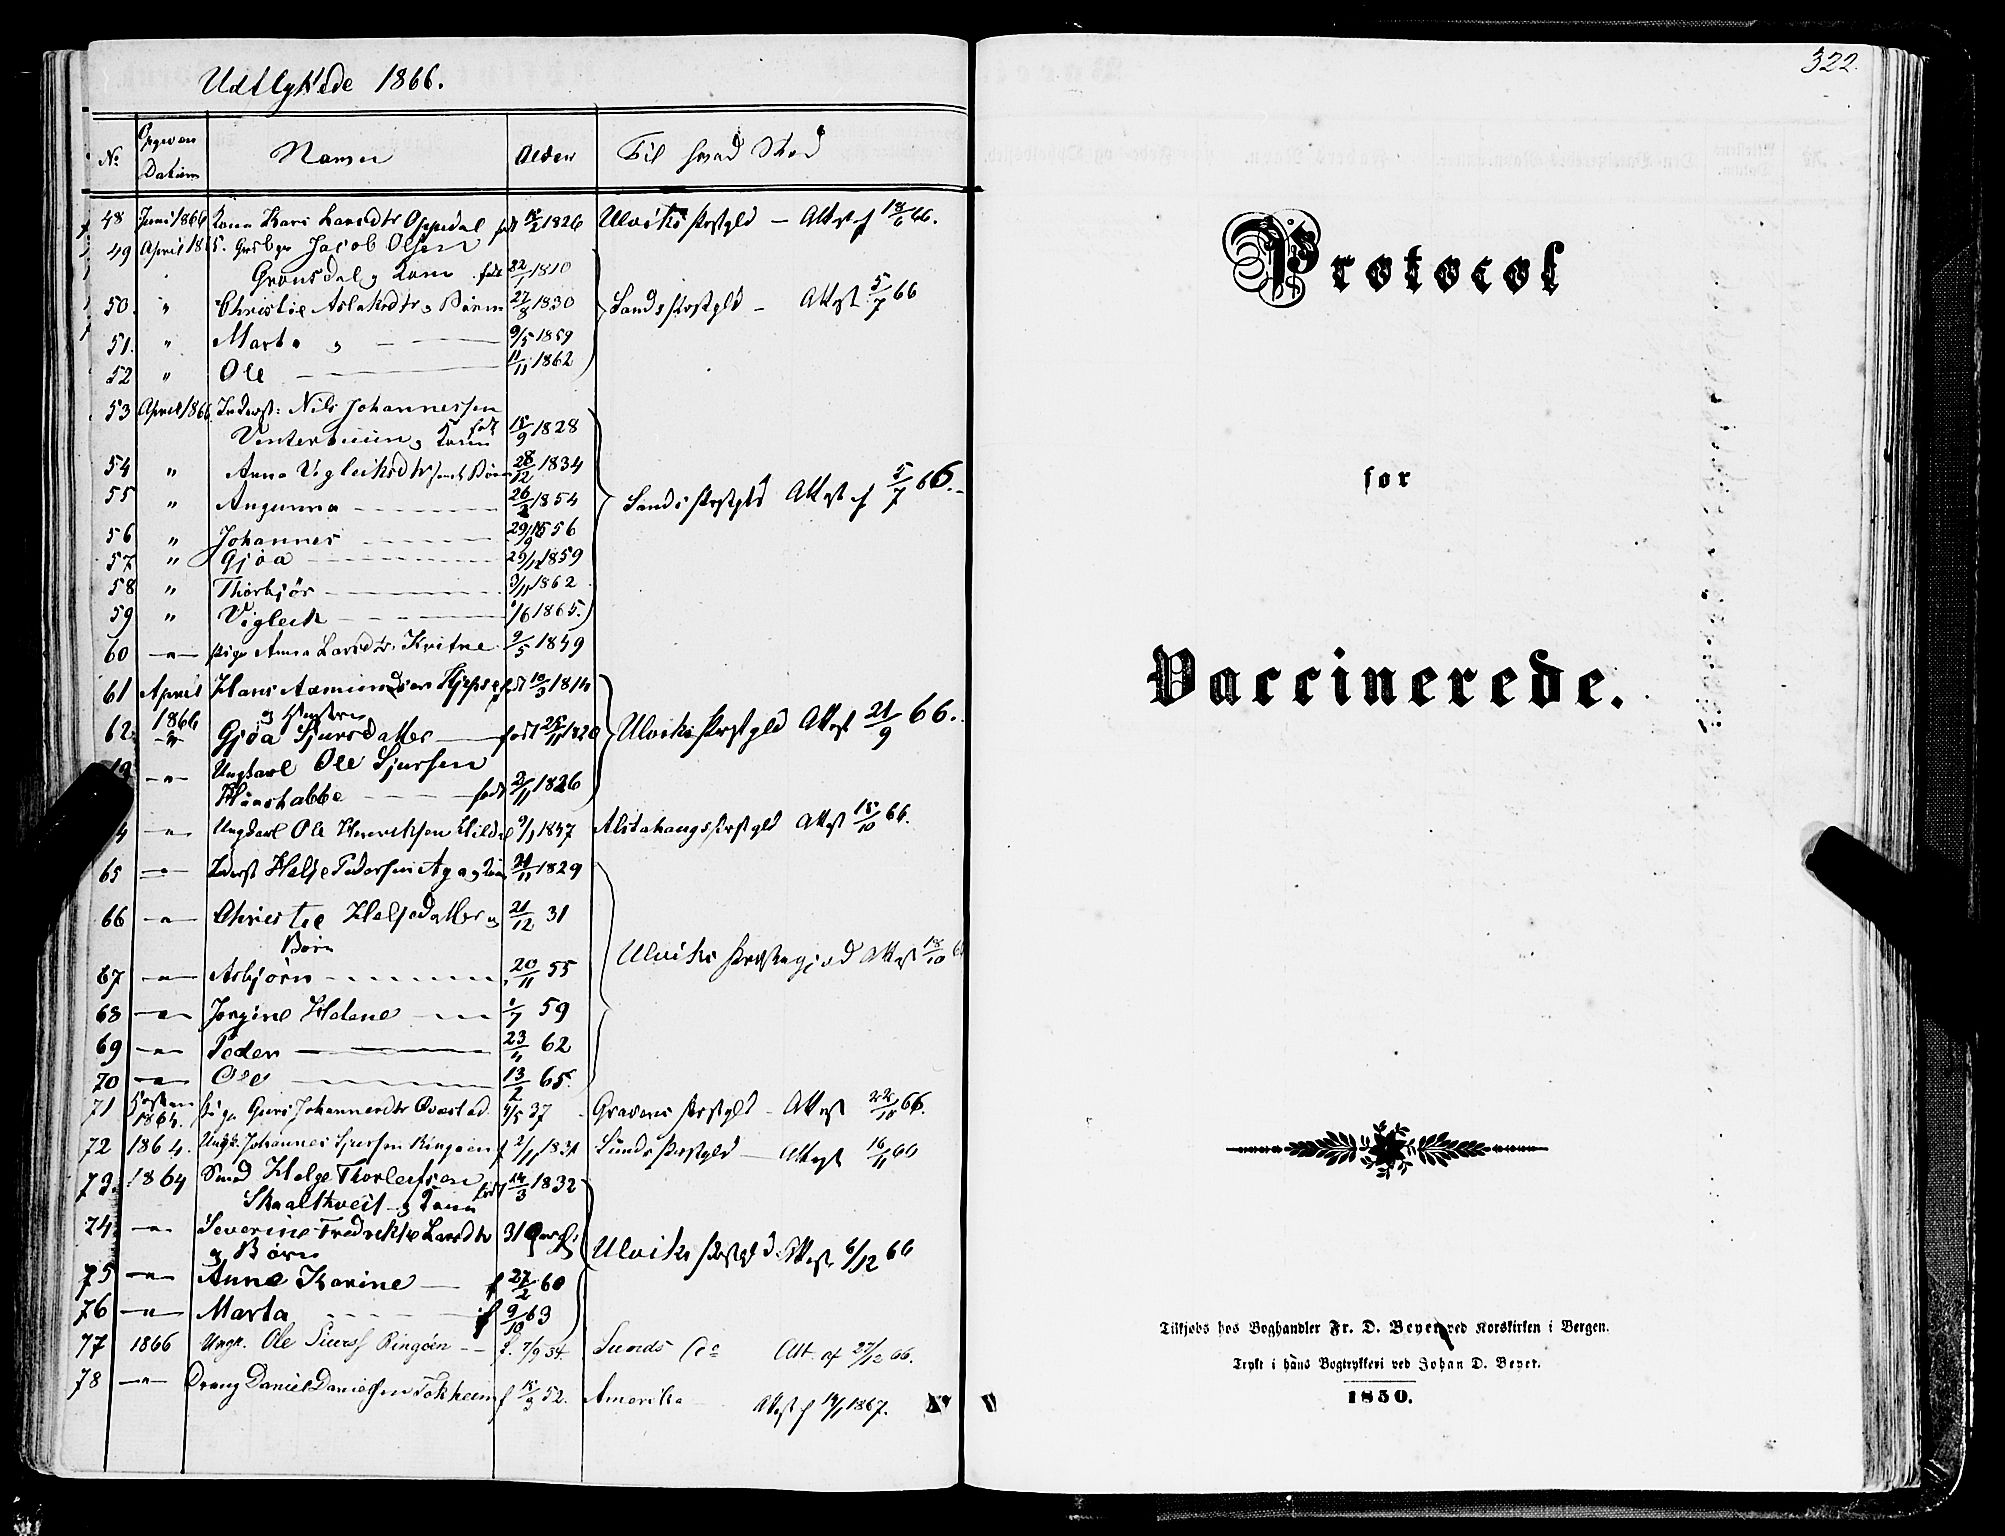 Udflyttede 1866.
No Opgiven Datum Navne Alder Til hvad Sted
48 Juni 1866 Kone Kari Larsdtr Oppedal født 1826 Ulviks Prstgld – Attest f 18/6 66.
49 April 1865. Jacob Olsen
Gronsdal og Kone født 22/1 1810
50. " Christie Aslaksdtr og Børn 27/8 1830 Sands Prstgld – Attest 5/7 66
51. " Marta og 9/5 1859
52 " Ole 11/11 1862
53 April 1866 Inderst: Nils Johannessen
og Kone født 15/9 1828
54 " Anna Vigleiksdtr samt Børn 28/12 1834
55 " Angunna 26/2 1854 Sands Prstgld Attest f 5/7 66.
56 " Johannes 29/9 1856
57 " Gjøa 29/12 1859
58 " Thorbjør 3/11 1862
59 " Vigleik 1/6 1865.
60 –"– Pige Anna Larsdtr. Kvitne 9/5 1849
61 April Hans Aamundsen født 10/3 1814
1866 og Hustru
62. –"– Gjøa Sjursdatter født 25/11 1820 Ulviks Prstgld Attest 21/9 66.
–"– Ungkarl Ole Sjursen
født 2/11 1826
4 –"– Ungkarl Ole Henriksen Hildal 9/1 1847 Alstahaugs Prstgld Attest 18/10 66.
65 –"– Inderst Helje Pedersen Aga og Kone 24/11 1829
66 –"– Christie Heljedatter og 21/12 31
Børn
67 –"– Asbjørn 20/11 55 Ulviks Præstegjæld Attest 18/10
68 –"– Jorgine Helene 1/7 59
69 –"– Peder 23/11 62
70 –"– Ole 13/2 65.
71 Høsten 1864. Pige Guri Johannesdtr 4/5 37 Gravens Prstgld – Attest 22/10 66.
72 1864. Ungk. Johannes Sjursen Ringøen f 2/11 1831 Sunds Prstgld – Attest 16/11 66
73. 1864 Smed Helge Thorleifsen
Skaaltveit og Kone født 14/3 1832
74. –"– Severine Fredrikke Larsdtr 31 Aar Ulviks Prstgld. Attest 6/12 66
og Børn
75 –"– Anne Karine f 27/2 60
76 –"– Marta f 9/10 63
77 1866 Ungk. Ole Siurs Ringøen f. 7/9 34. Sunds do Att. af 27/12 66.
78 –"– Dreng Daniel Danielsen Tokheim f 15/3 52. Amerika Attest f 14/1 1867.
322.
Protocol
for
Vaccinerede.
Tilkjøbs hos Boghandler Fr. D. Beyer ved Korskirken i Bergen.
Trykt i hans Bogtrykkeri ved Johan D. Beyer.
1850.